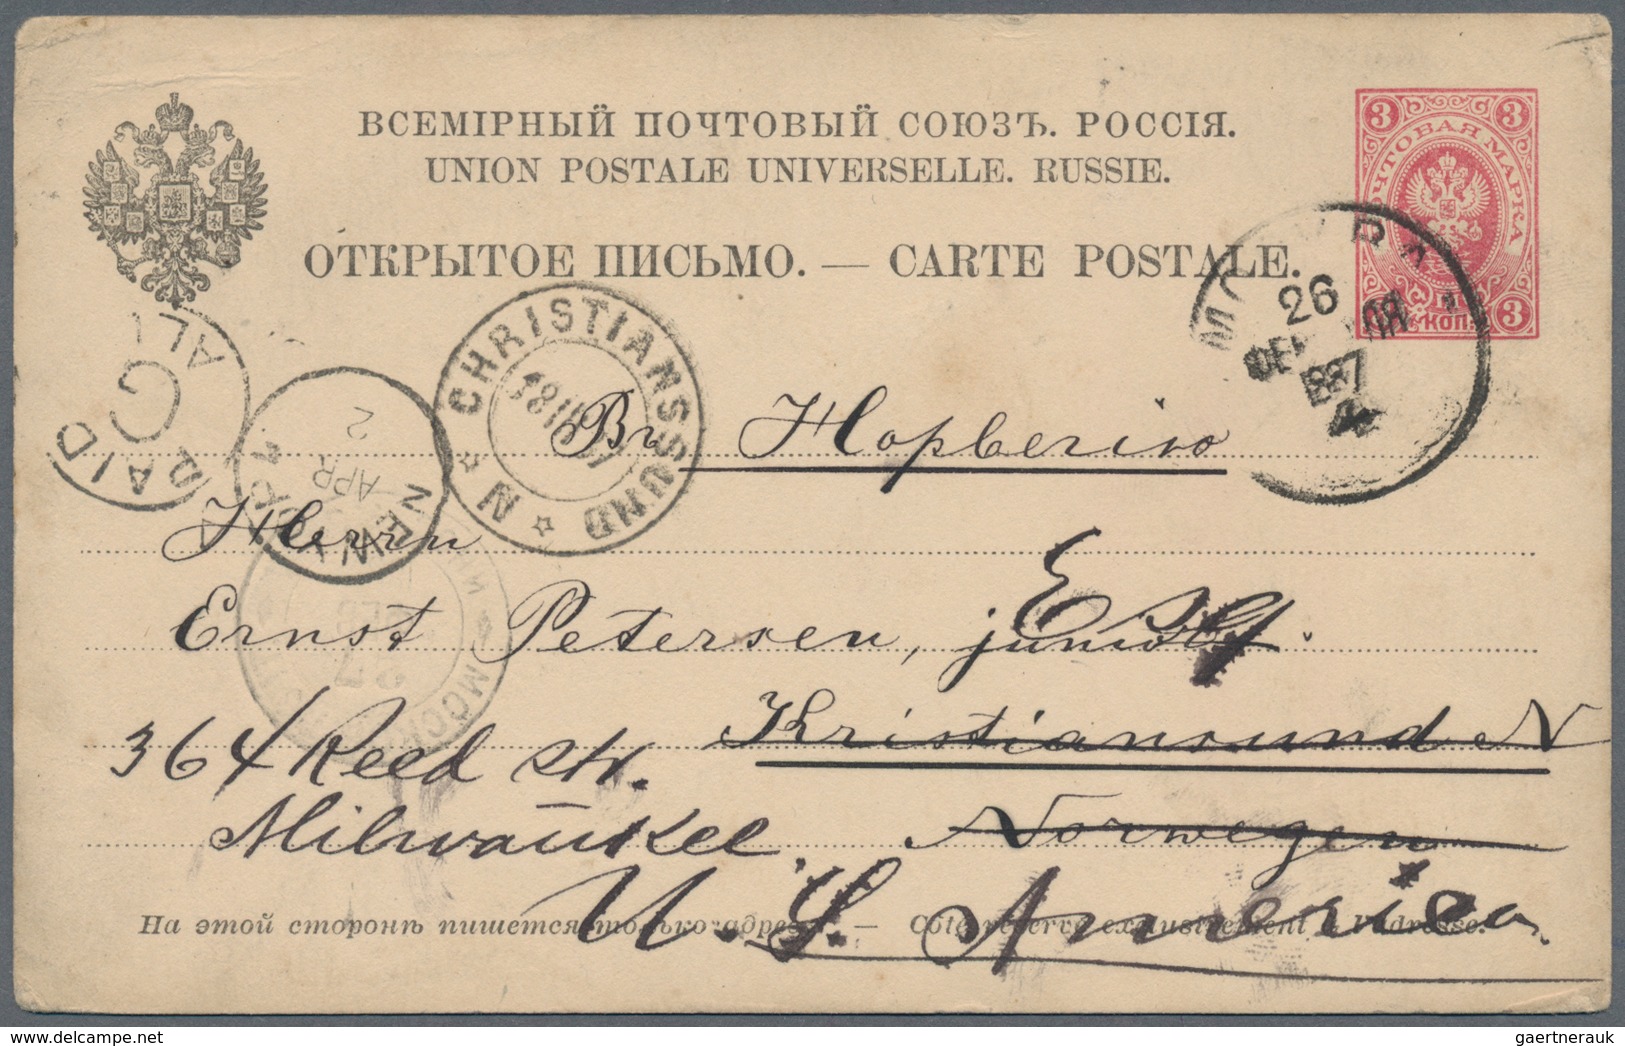 ВСЕМІРНЫЙ ПОЧТОВЫЙ СОЮЗЪ. РОССІЯ.
UNION POSTALE UNIVERSELLE. RUSSIE.
ОТКРЫТОЕ ПИСЬМО. — CARTE POSTALE.
3 3
ПОЧТОВАЯ МАРКА
3 КОП. 3
МОСКВА
26
1887
PAID
G
ALL
NEW YORK
APR
2
CHRISTIANSSUND N
18 III 87
Br Hopberivo
Herrn
Ernst Petersen, junior.
Kristiansund N
364 Reed str.
Norwegen
Milwaukee.
U. S. America
На этой сторонѣ пишется только адресъ. — Côté réservé exclusivement à l'adresse.
gaertnerauk